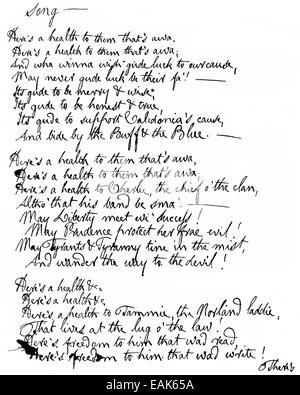 Song —
Here's a health to them that's awa,
Here's a health to them that's awa;
And wha winna wish gude luck to our cause, —
May never gude luck be their fa'! —
Its gude to be merry & wise;
Its gude to be honest & true,
Its gude to support Caledonia's cause,
And bide by the Buff & the Blue. —
Here's a health to them that's awa,
Here's a health to them that's awa;
Here's a health to Charlie, the chief o' the clan,
Altho' that his band be sma'. —
May Liberty meet wi' success!
May Prudence protect her frae evil!
May Tyrants & Tyranny tine in the mist,
And wander the way to the devil!
Here's a health &c.
Here's a health &c.
Here's a health to Tammie, the Norland laddie,
That lives at the lug o' the law!
Here's freedom to him that wad read,
Here's freedom to him that wad write!
alamy
Image ID: EAK65A
www.alamy.com